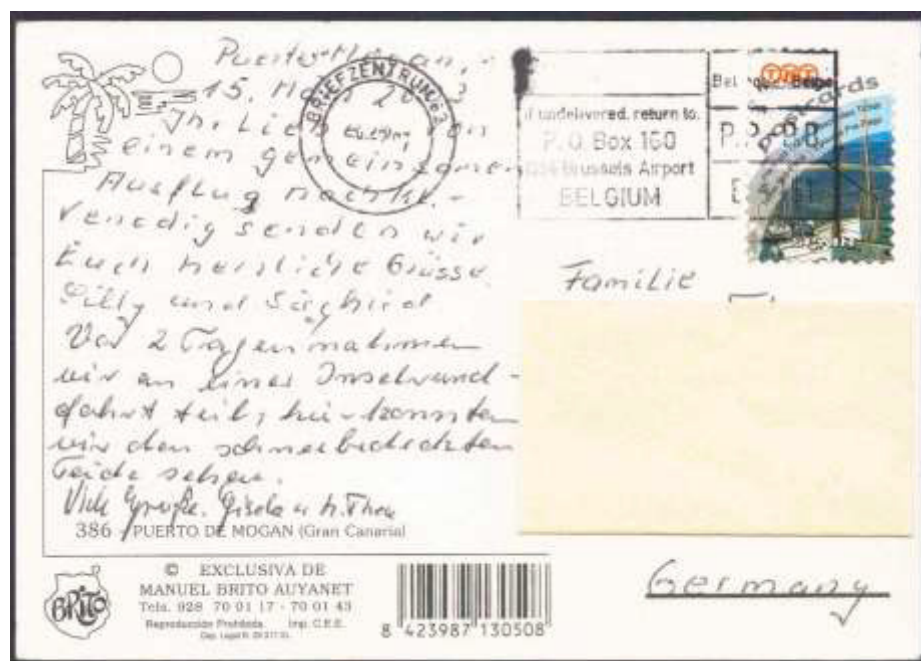 Puerto Mogan, -
15. März 20 3
Ihr Lieben von
einem gemeinsamen
Ausflug nach Kl.-
Venedig senden wir
Euch herzliche Grüsse
und
Vor 2 Tagen nahmen
wir an einer Inselrund-
fahrt teil, hier konnten
wir den schneebedeckten
Teide sehen.
Viele Grüße. Gisela u.
386 PUERTO DE MOGAN (Gran Canaria)
BRITO
© EXCLUSIVA DE
MANUEL BRITO AUYANET
Tels. 928 70 01 17 - 70 01 43
Reproducción Prohibida. Imp. C.E.E.
8 423987 130508
BRIEFZENTRUM 63
If undelivered, return to:
P.O. Box 160
Brussels Airport
BELGIUM
TNT
Postcards
Familie
Germany